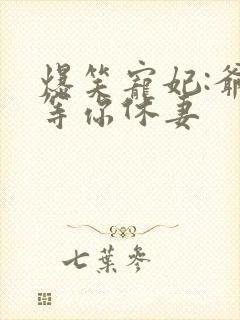 爆笑寵妃:爺
等你休妻
七葉參